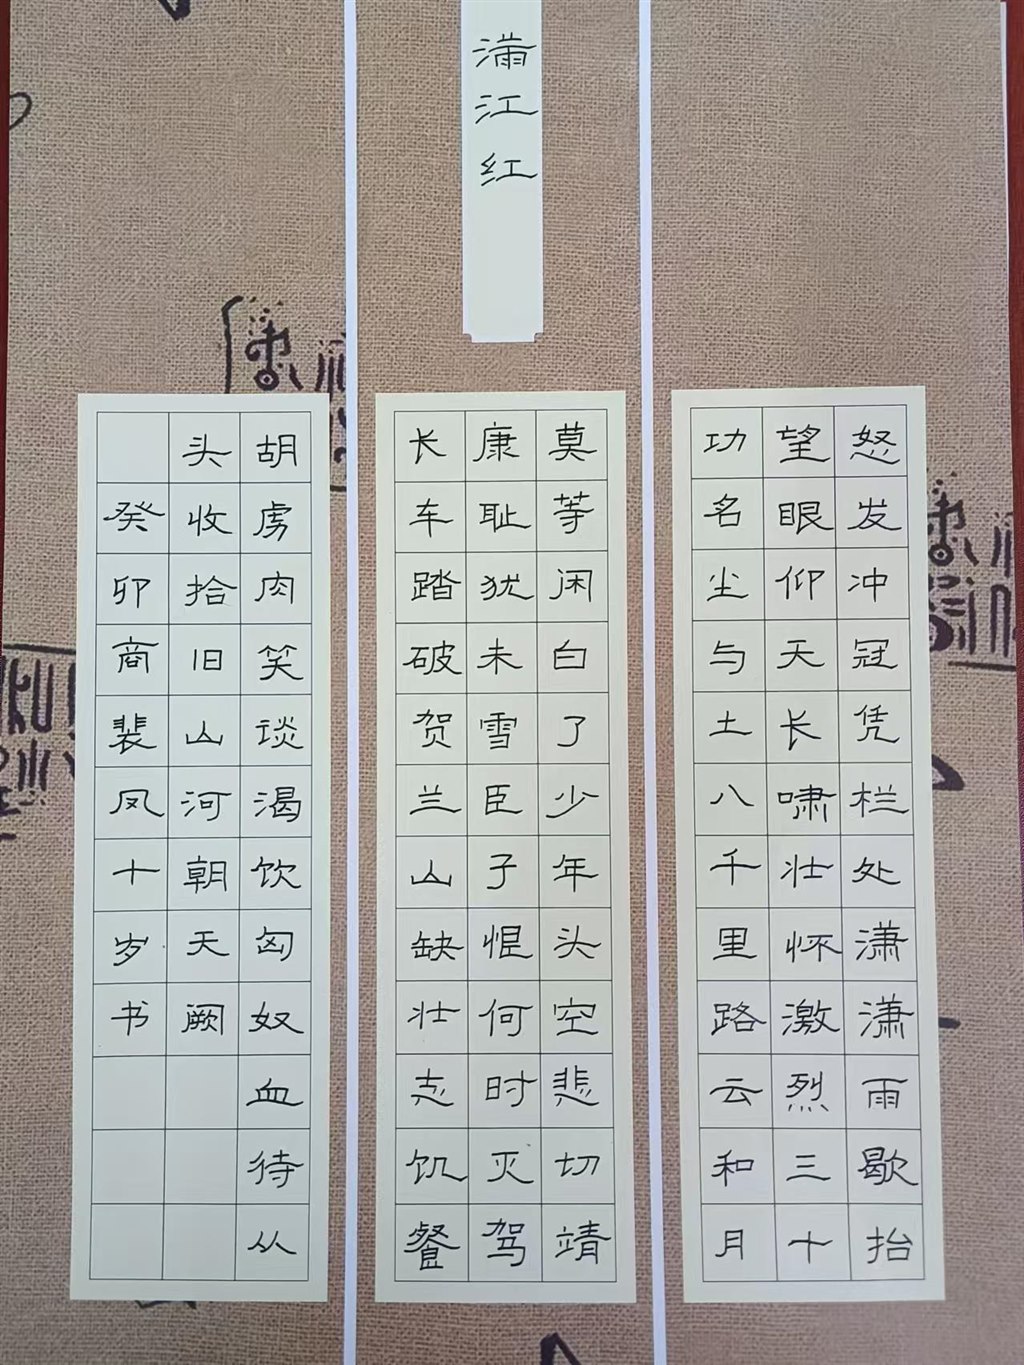 满江红
怒发冲冠凭栏处潇潇雨歇抬
望眼仰天长啸壮怀激烈三十
功名尘与土八千里路云和月
莫等闲白了少年头空悲切靖
康耻犹未雪臣子恨何时灭驾
长车踏破贺兰山缺壮志饥餐
胡虏肉笑谈渴饮匈奴血待从
头收拾旧山河朝天阙
癸卯商裴凤十岁书